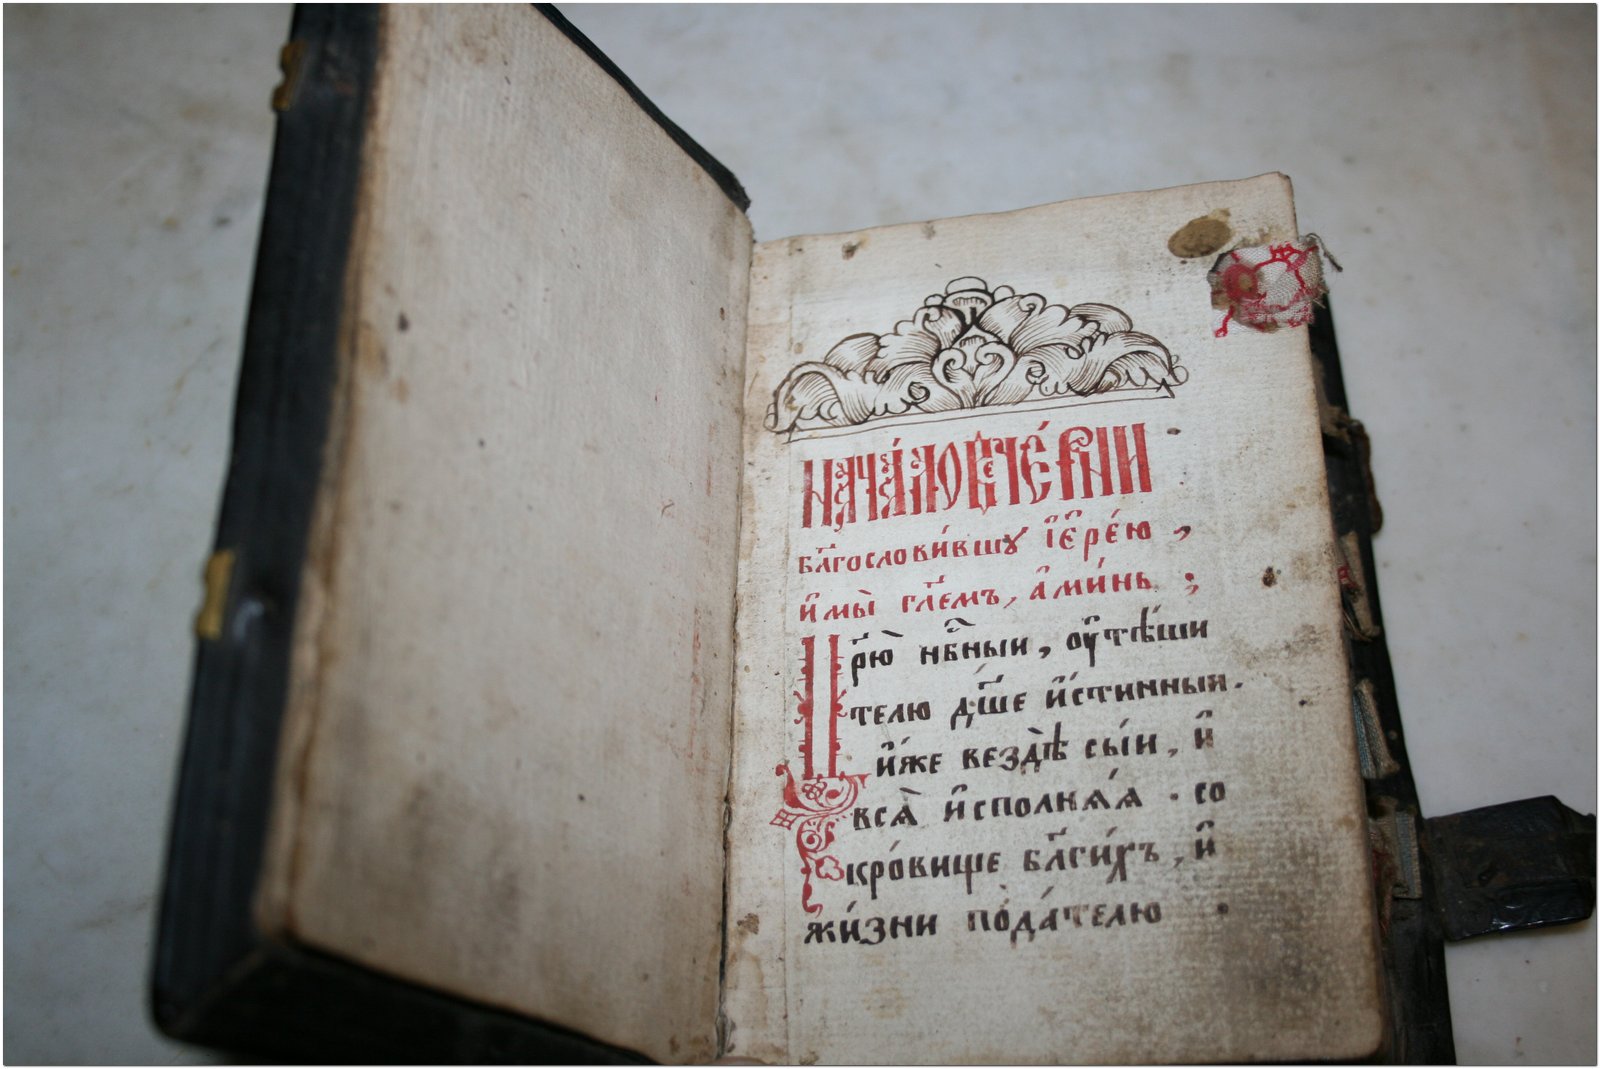 Нача́ло вече́рни
бл҃гослови́вшꙋ і҆ере́ю,
и҆ мы̀ гл҃емъ, а҆ми́нь;
Цр҃ю̀ нб҃ныи, оу҆тѣ́ши
телю дш҃е и҆́стинныи.
и҆́же вездѣ̀ сы́и, и҆
всѧ̀ и҆сполнѧ́ѧ. со
кро́вище бл҃ги́хъ, и҆
жи́зни пода́телю.